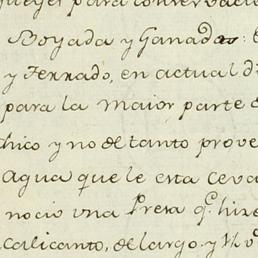 para conservacio
Boyada y Ganados:
y Ferrado, en actual d
para la maior parte d
chico y no de tanto prove
agua que le esta ceva
nocio una Presa q.e hize
calicanto, de largo y